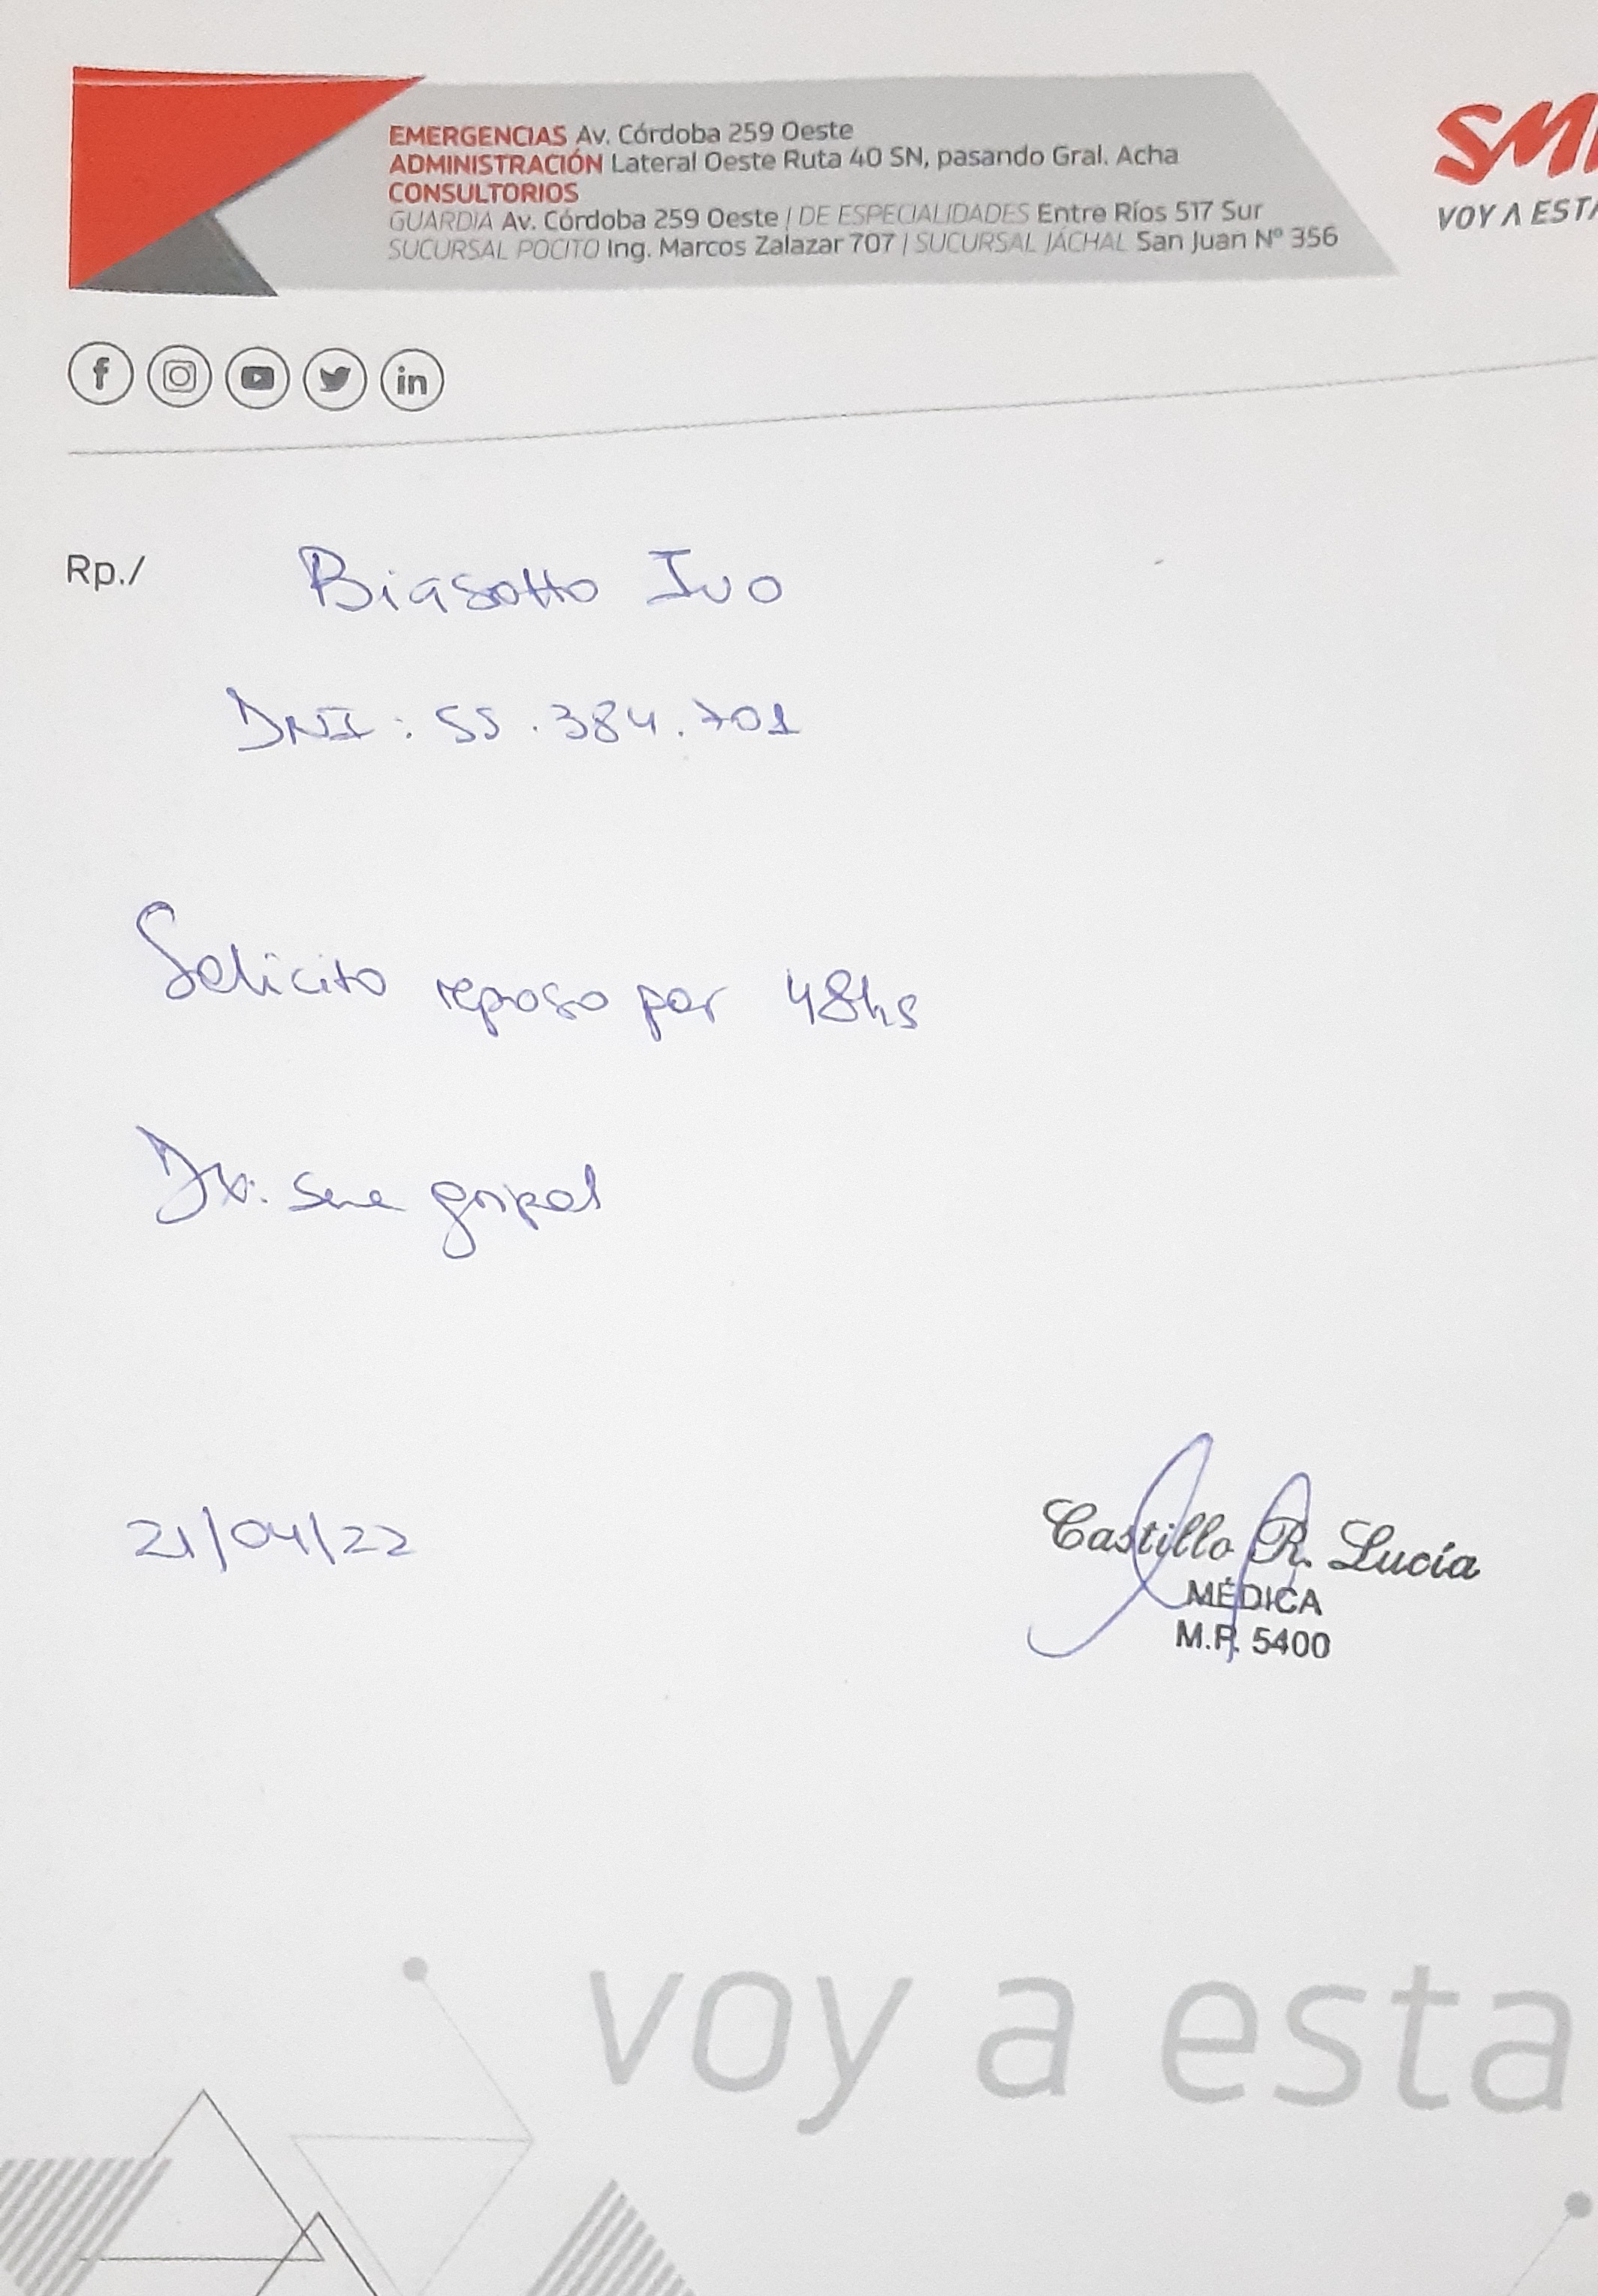 EMERGENCIAS Av. Córdoba 259 Oeste
ADMINISTRACIÓN Lateral Oeste Ruta 40 SN, pasando Gral. Acha
CONSULTORIOS
GUARDIA Av. Córdoba 259 Oeste | DE ESPECIALIDADES Entre Ríos 517 Sur
SUCURSAL POCITO Ing. Marcos Zalazar 707 | SUCURSAL JÁCHAL San Juan Nº 356
VOY A ESTA
Rp./ Biasotto Ivo
DNI: 55.384.701
Solicito reposo por 48hs
Dx: sme gripal
21/04/22
Castillo R. Lucía
MÉDICA
M.P. 5400
voy a esta